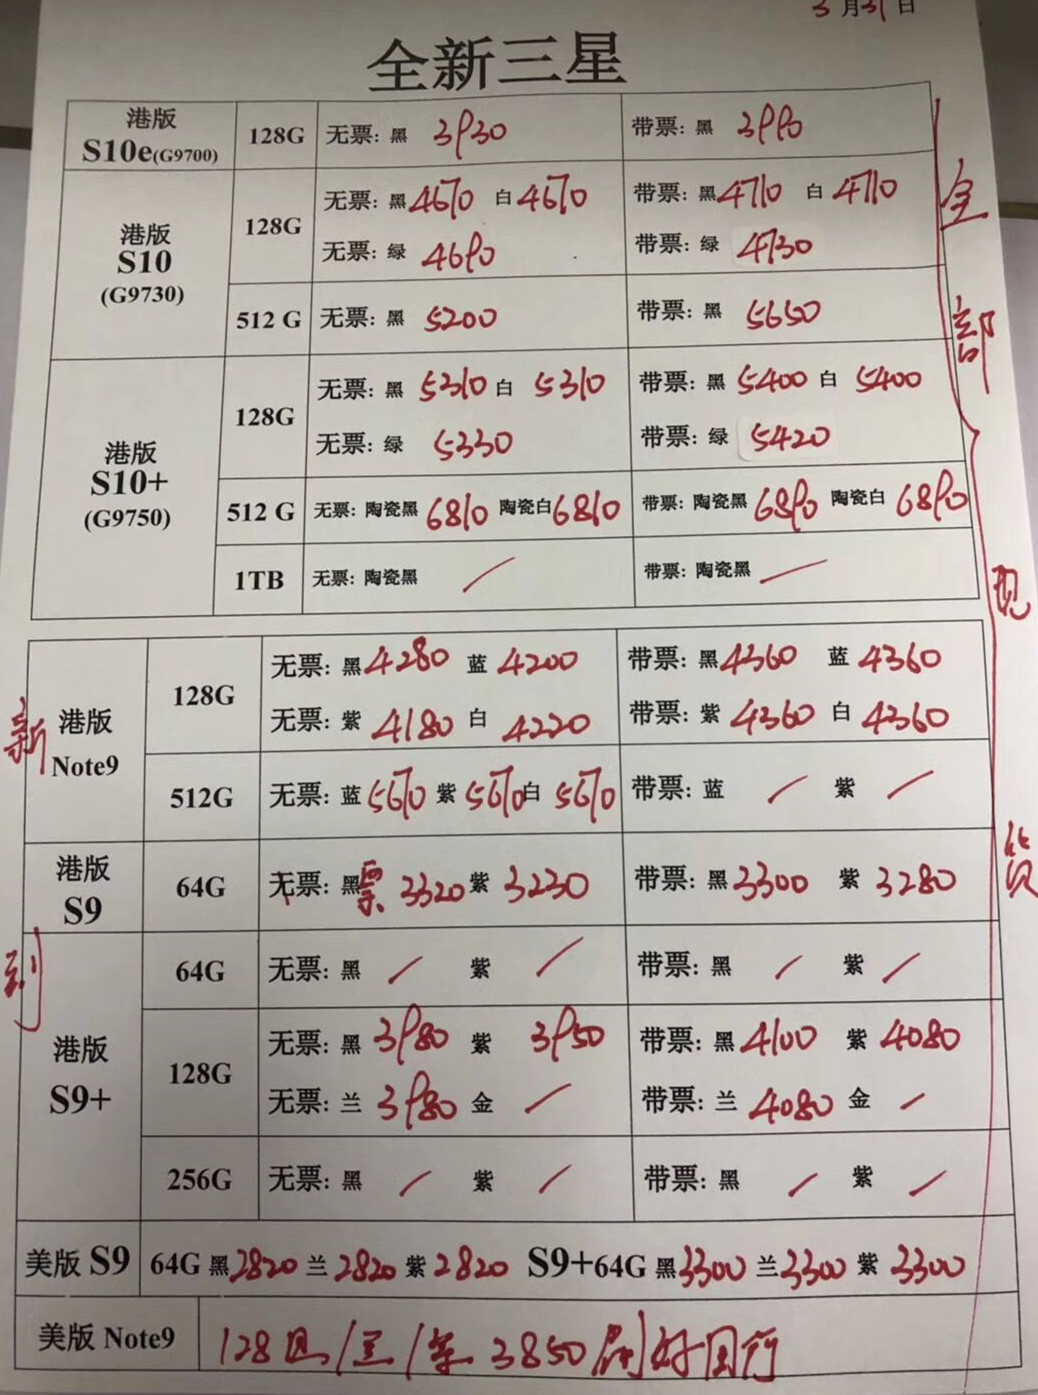 3月31日
全新三星
港版
S10e(G9700)
128G
无票: 黑 3930
带票: 黑 3990
港版
S10
(G9730)
128G
无票: 黑 4670 白 4670
带票: 黑 4710 白 4710
无票: 绿 4690
带票: 绿 4730
512 G
无票: 黑 5200
带票: 黑 5650
港版
S10+
(G9750)
128G
无票: 黑 5310 白 5310
带票: 黑 5400 白 5400
无票: 绿 5330
带票: 绿 5420
512 G
无票: 陶瓷黑 6810 陶瓷白 6810
带票: 陶瓷黑 6890 陶瓷白 6890
1TB
无票: 陶瓷黑 /
带票: 陶瓷黑 /
全部现货
新到
港版
Note9
128G
无票: 黑 4280 蓝 4200
带票: 黑 4360 蓝 4360
无票: 紫 4180 白 4220
带票: 紫 4360 白 4360
512G
无票: 蓝 5670 紫 5670 白 5670
带票: 蓝 / 紫 /
港版
S9
64G
无票: 黑票 3320 紫 3230
带票: 黑 3300 紫 3280
港版
S9+
64G
无票: 黑 / 紫 /
带票: 黑 / 紫 /
128G
无票: 黑 3980 紫 3950
带票: 黑 4100 紫 4080
无票: 兰 3980 金 /
带票: 兰 4080 金 /
256G
无票: 黑 / 紫 /
带票: 黑 / 紫 /
美版 S9
64G 黑 2820 兰 2820 紫 2820 S9+64G 黑 3300 兰 3300 紫 3300
美版 Note9
128 黑/兰/紫 3850 刷好国行